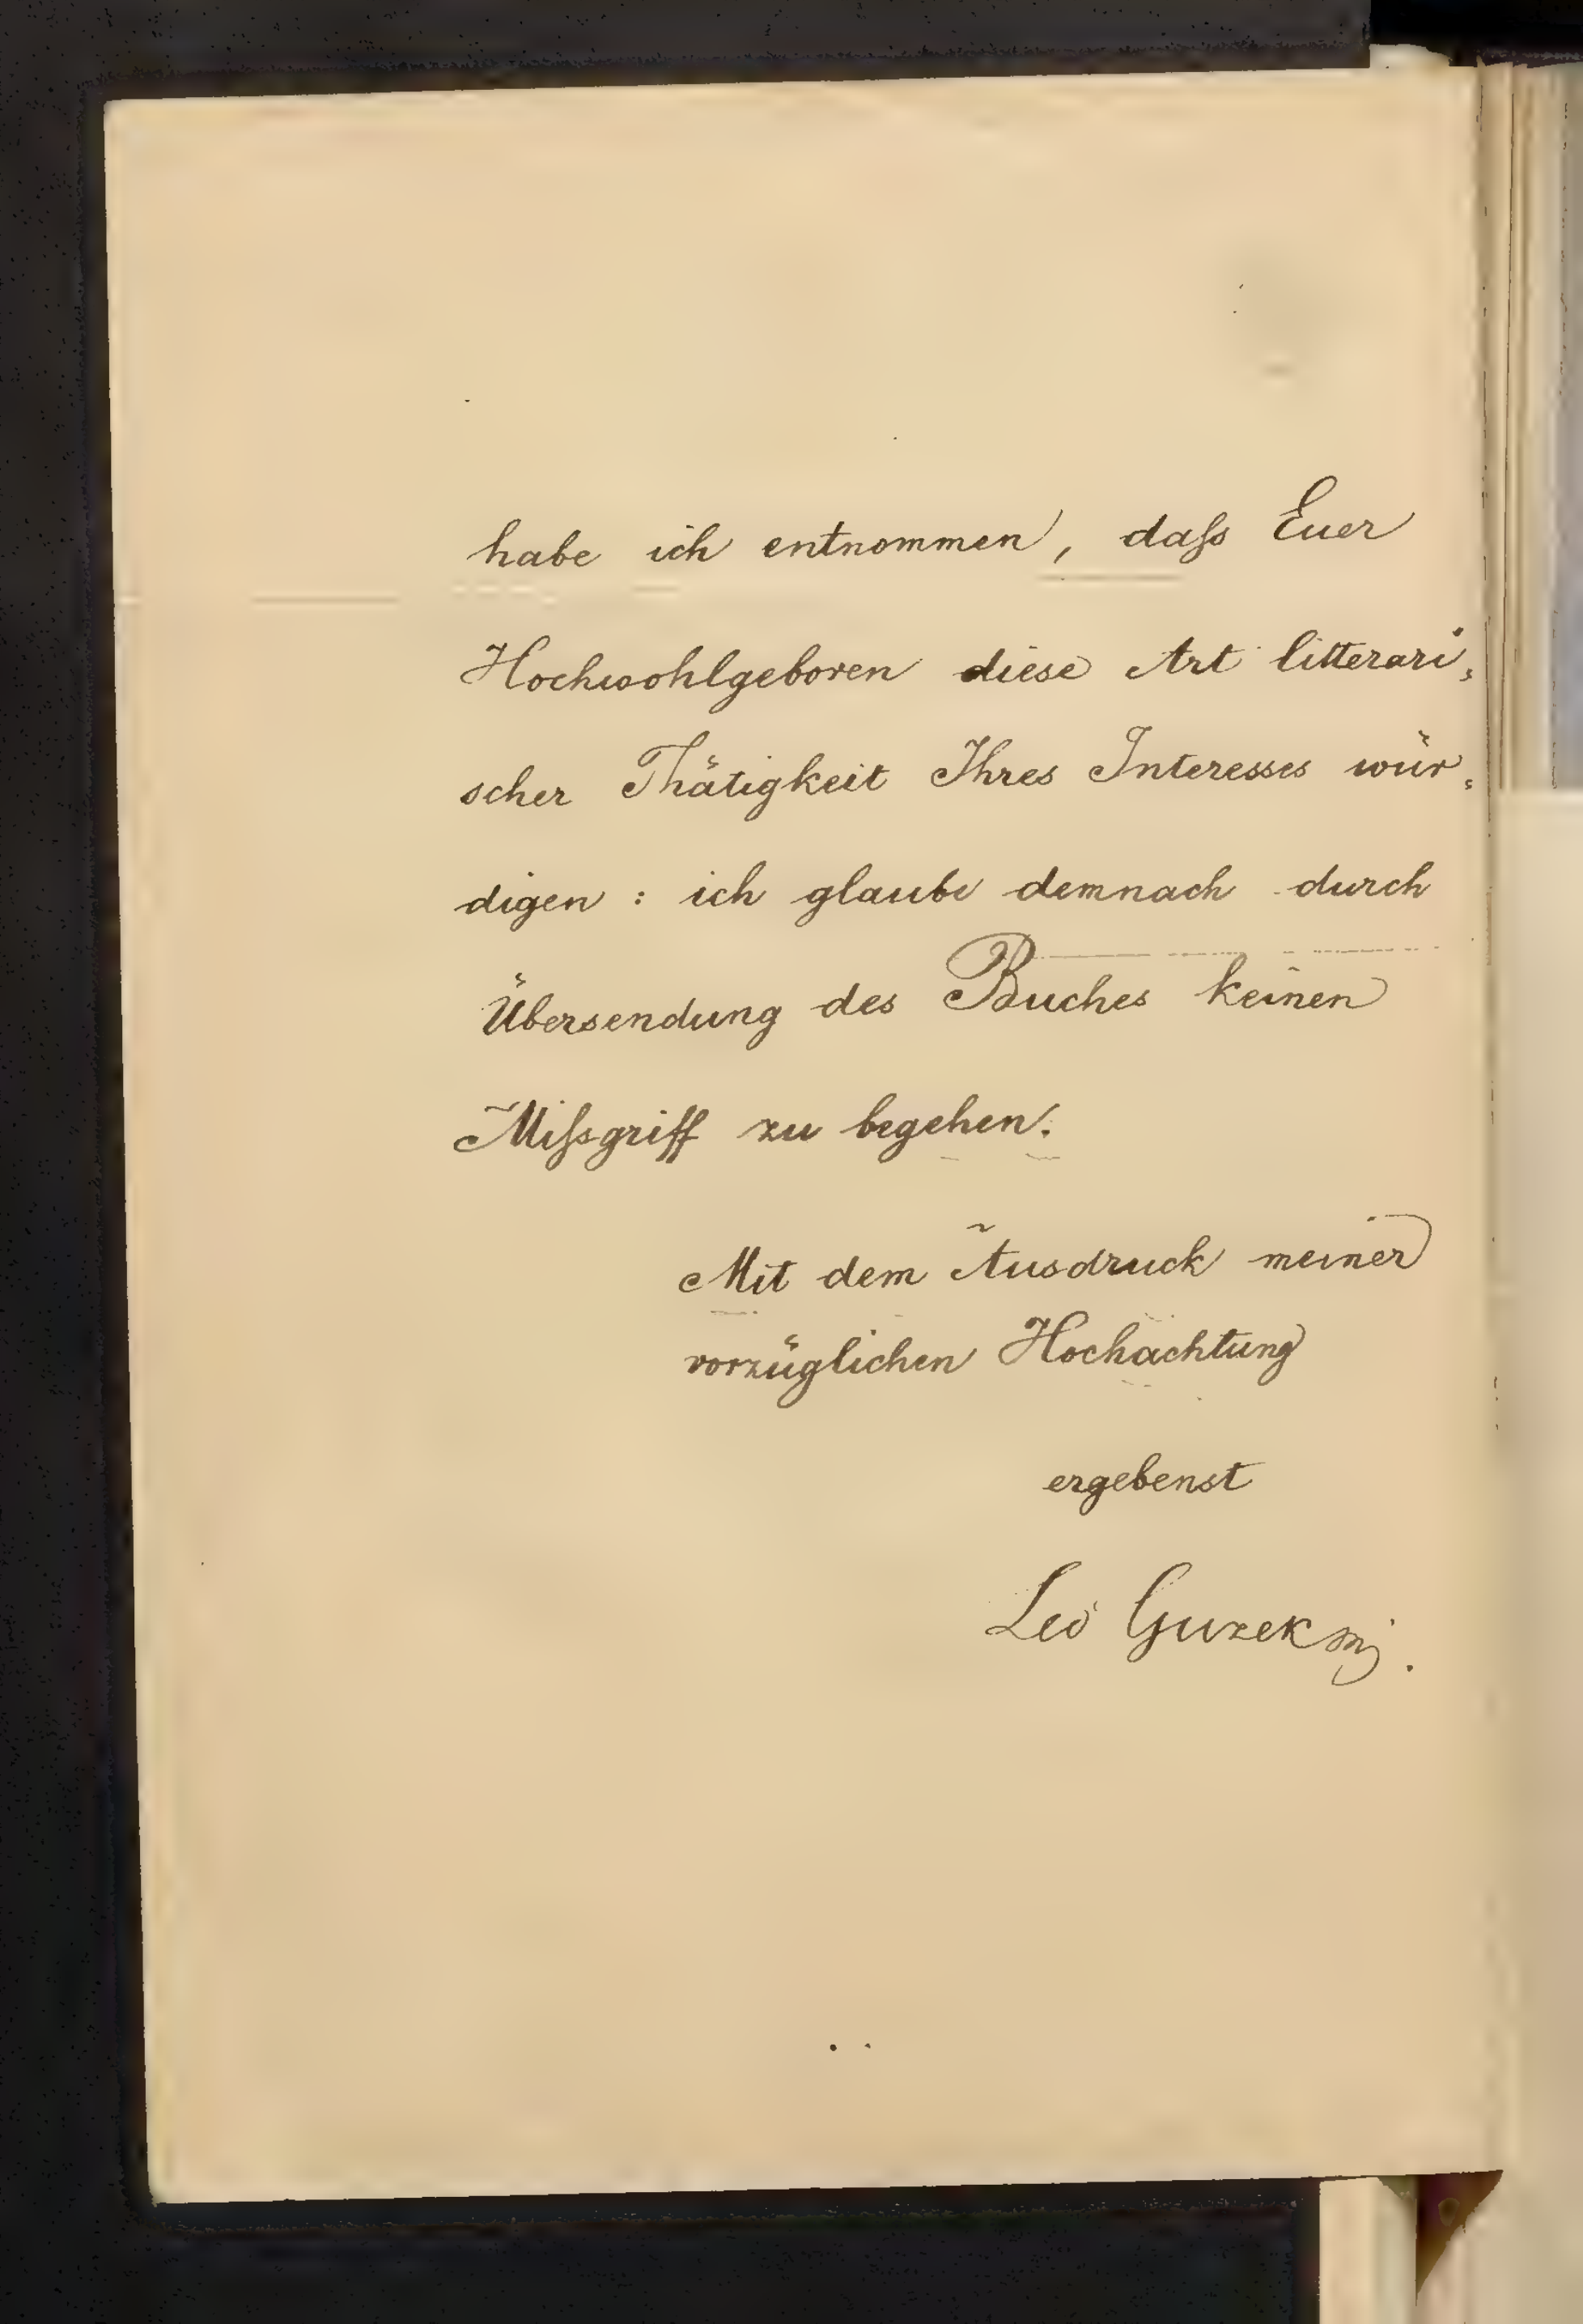 habe ich entnommen, daſs Euer
Hochwohlgeboren diese Art litterari-
scher Thätigkeit Ihres Interesses wür-
digen : ich glaube demnach durch
Übersendung des Buches keinen
Miſsgriff zu begehen.
Mit dem Ausdruck meiner
vorzüglichen Hochachtung
ergebenst
Leo